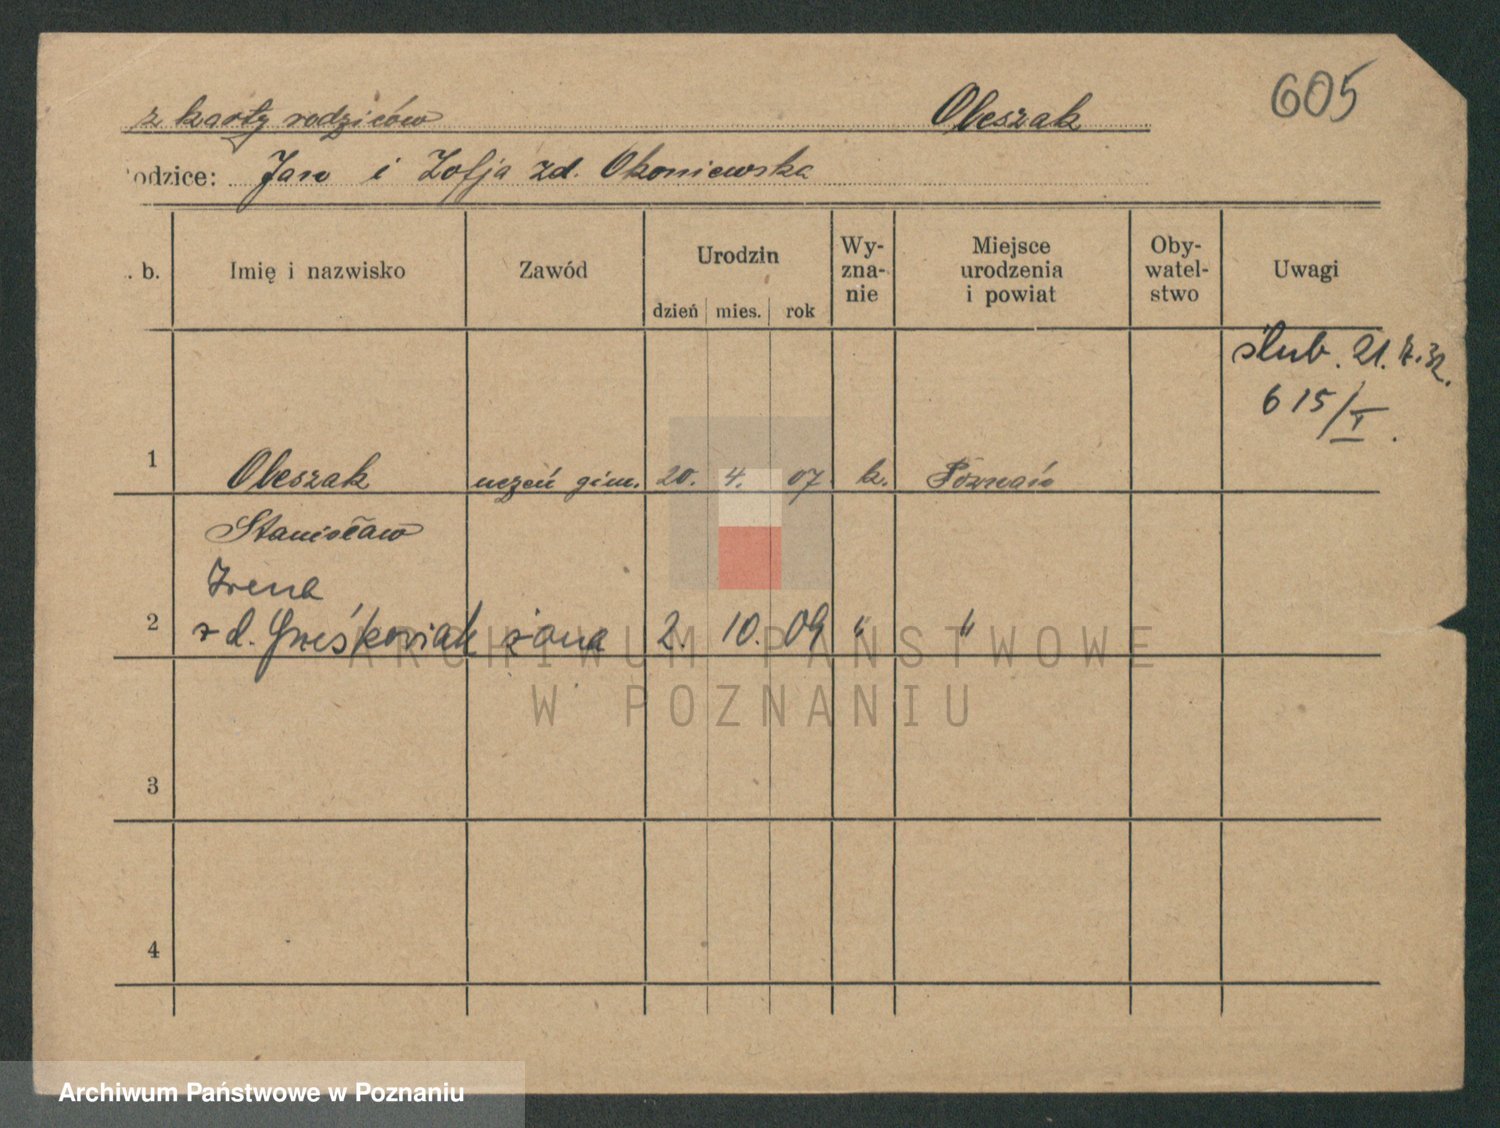 605
z karty rodziców Obeszak
odzice: Jan i Zofja zd. Okoniewska
. b. Imię i nazwisko Zawód Urodzin dzień mies. rok Wy-zna-nie Miejsce urodzenia i powiat Oby-watel-stwo Uwagi
ślub. 21. 7. 32.
615/I.
1 Obeszak uczeń gim. 20. 4. 07 k. Poznań
Stanisław
Irena
2 zd. Grześkowiak żona 2. 10. 09 " "
ARCHIWUM PAŃSTWOWE
W POZNANIU
3
4
Archiwum Państwowe w Poznaniu